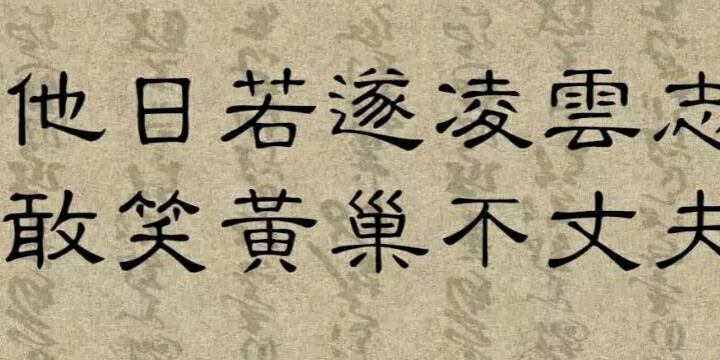 他日若遂凌雲志
敢笑黃巢不丈夫